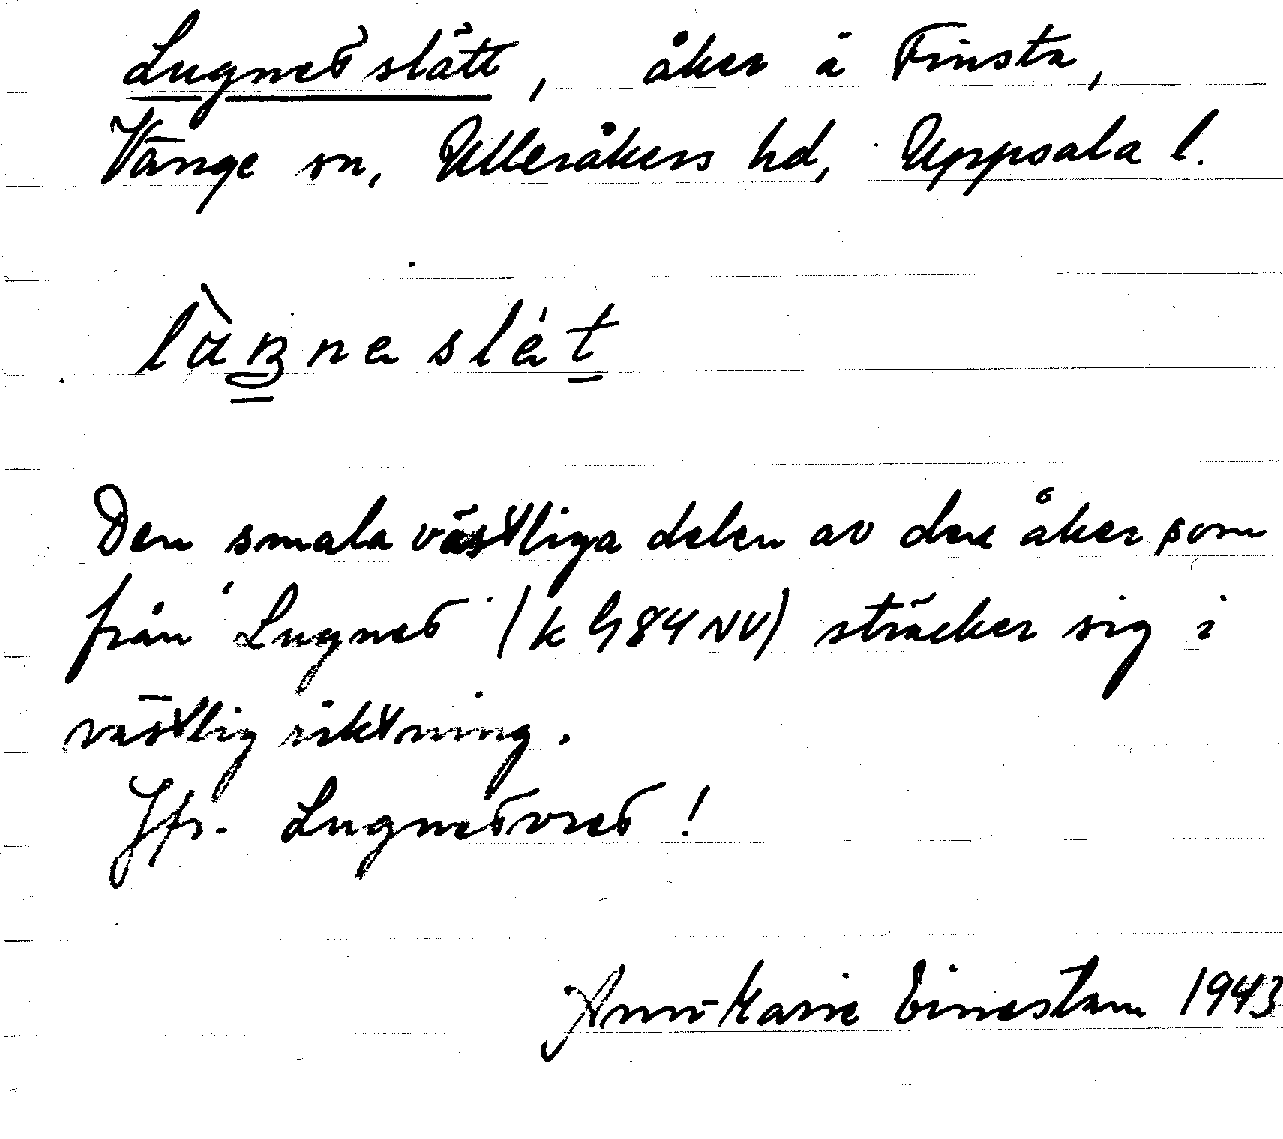 Lugnetslätt, åker å Finsta,
Vänge sn, Ulleråkers hd, Uppsala l.
Den smala västliga delen av den åker som
från Lugnet (k G84NV) sträcker sig i
västlig riktning.
Jfr. Lugnetvret!
Ann-Marie Einestam 1943